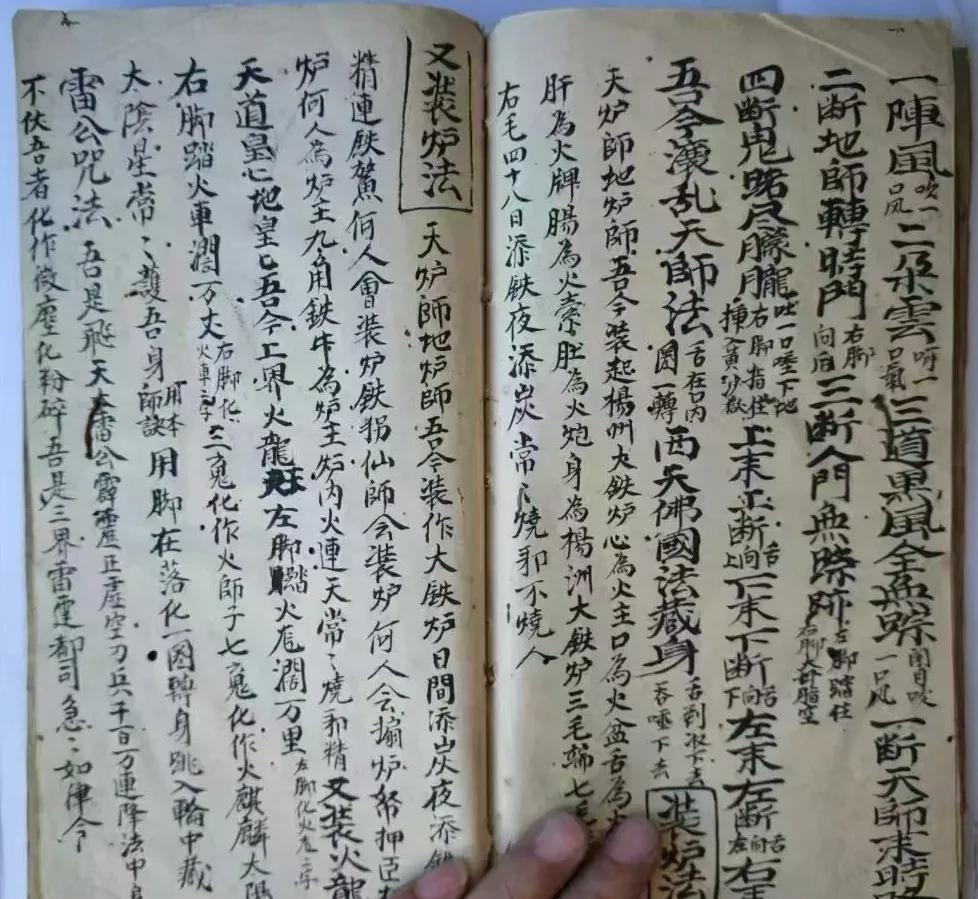 一陣風吹一口风二朵雲呵一口氣三道黑風全無踪闭目吹一口风一断天師末時路
二断地師轉時門右脚向后三断人門無踪跡左脚踏住右脚大母脂空
四断鬼路尽朦朧吐一口唾下地右脚指住揷入黄沙獄上末上断舌向上下末下断舌向下左末左断舌向左右末
吾今潢乱天師法舌在口內圆一轉西天佛國法藏身舌到汝下去吞唾下去 装炉法
天炉師地炉師吾今装起楊州大鉄炉心為火主口為火盆舌為火
肝為火牌腸為火索肚為火炮身為楊洲大鉄炉三毛
右毛四十八日添鉄夜添炭常〻燒邪不燒人
又裝炉法 天炉師地炉師吾今装作大鉄炉日間添炭夜添鉄
精連鉄駕何人會装炉鉄拐仙師会装炉何人会搧炉帑押臣
炉何人為炉主九角鉄牛為炉主炉内火連天常〻燒邪精又装火龍
天道皇〻地皇〻吾今上界火龍左脚踏火苊濶万里左脚化火苊字
右脚踏火車濶万丈右脚化火車字三魂化作火師子七魂化作火麒麟太陽
太陰星常〻護吾身師訣用本用脚在落化一圆轉身跳入輪中藏
雷公咒法 吾是飛天大雷公霹靂正虚空刀兵千百万連降法中
不伏吾者化作微塵化粉碎吾是三界雷霆都司急〻如律令